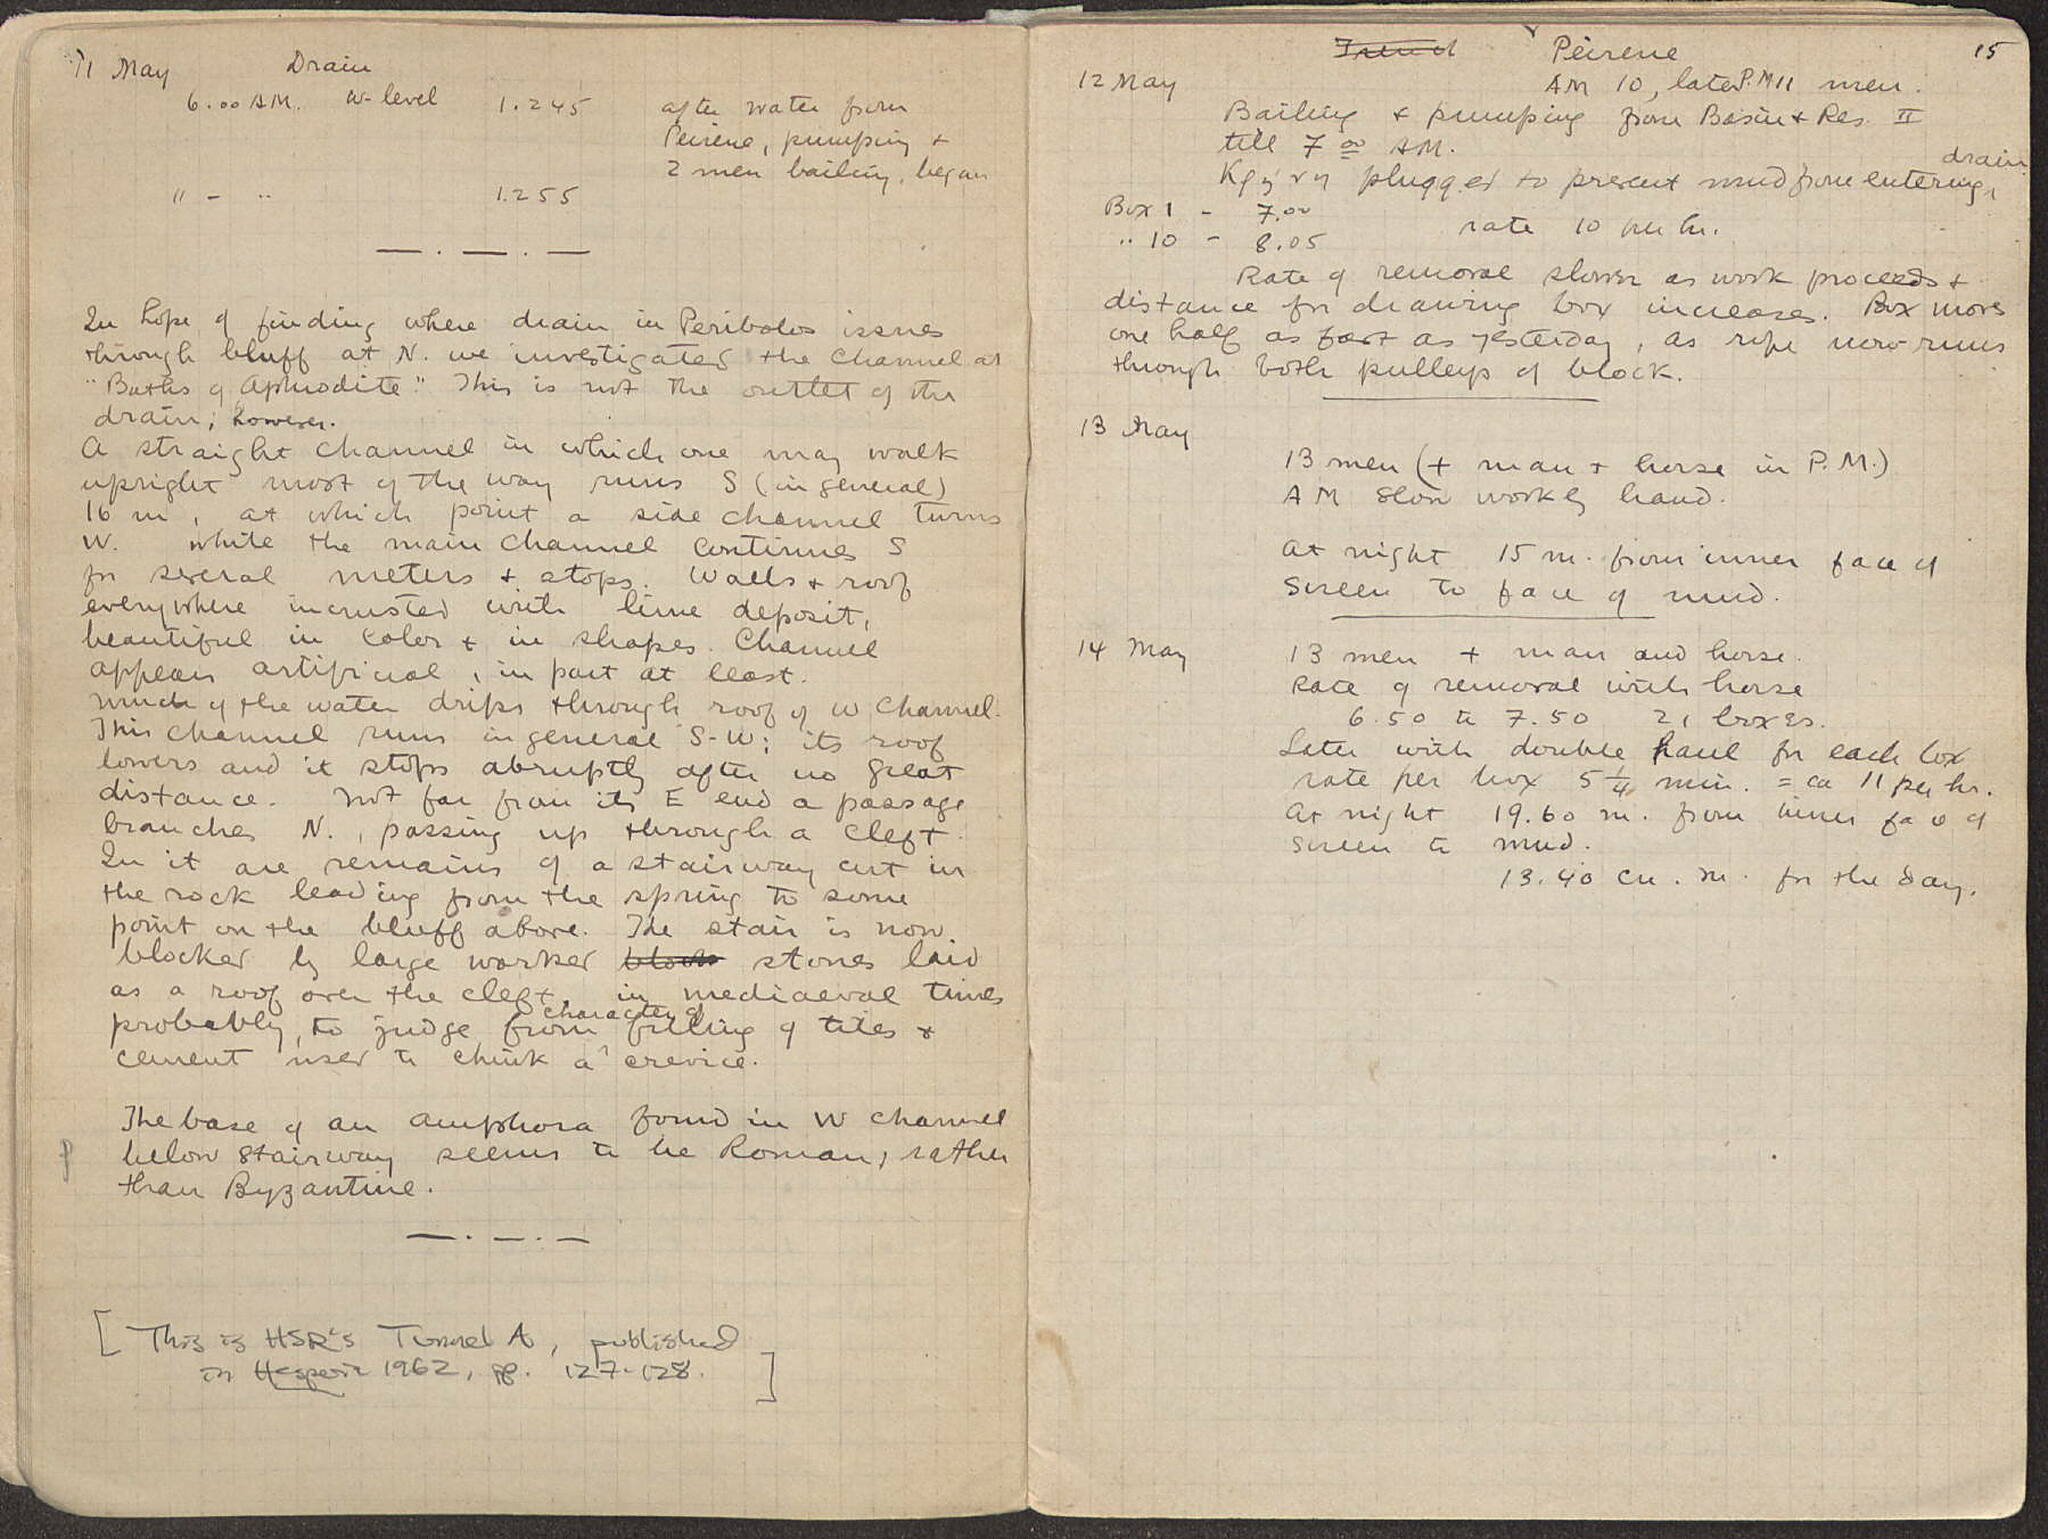 11 May Drain
6.00 A.M. W-level 1.245 after water from
Peirene, pumping +
2 men bailing, began
" - " 1.255
In hope of finding where drain in Peribolos issues
through bluff at N. we investigated the channel at
"Baths of Aphrodite." This is not the outlet of the
drain, however.
A straight channel in which one may walk
upright most of the way runs S (in general)
16 m, at which point a side channel turns
W. while the main channel continues S
for several meters + stops. Walls + roof
everywhere incrusted with lime deposit,
beautiful in color + in shapes. Channel
appears artificial, in part at least.
Much of the water drips through roof of W channel.
This channel runs in general S-W; its roof
lowers and it stops abruptly after no great
distance. Not far from its E end a passage
branches N., passing up through a cleft.
In it are remains of a stairway cut in
the rock leading from the spring to some
point on the bluff above. The stair is now
blocked by large worked block stones laid
as a roof over the cleft, in mediaeval times
probably, to judge from character of filling of tiles +
cement used to chink a crevice.
The base of an amphora found in W channel
below stairway seems to be Roman, rather
than Byzantine.
[This is HSR's Tunnel A, published
in Hesperia 1962, pp. 127-128.]
Trench Peirene 15
12 May AM 10, later P.M 11 men.
Bailing + pumping from Basin + Res. II
till 7 00 AM.
plugged to prevent mud from entering drain
Box 1 - 7.00
" 10 - 8.05 rate 10 per hr.
Rate of removal slower as work proceeds +
distance for drawing box increases. Box moves
one half as fast as yesterday, as rope now runs
through both pulleys of block.
13 May
13 men (+ man + horse in P.M.)
AM slow work by hand.
At night 15 m. from inner face of
screen to face of mud.
14 May 13 men + man and horse.
Rate of removal with horse
6.50 to 7.50 21 boxes.
Later with double haul for each box
rate per box 5 1/4 min. = ca 11 per hr.
At night 19.60 m. from inner face of
screen to mud.
13.40 cu. m. for the day.